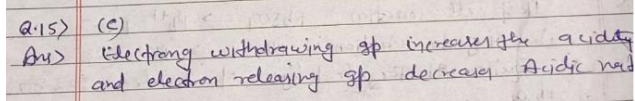 Q.15> (C)
Ans> Electrong withdrawing gp increases the acidity
and electron releasing gp decreases Acidic